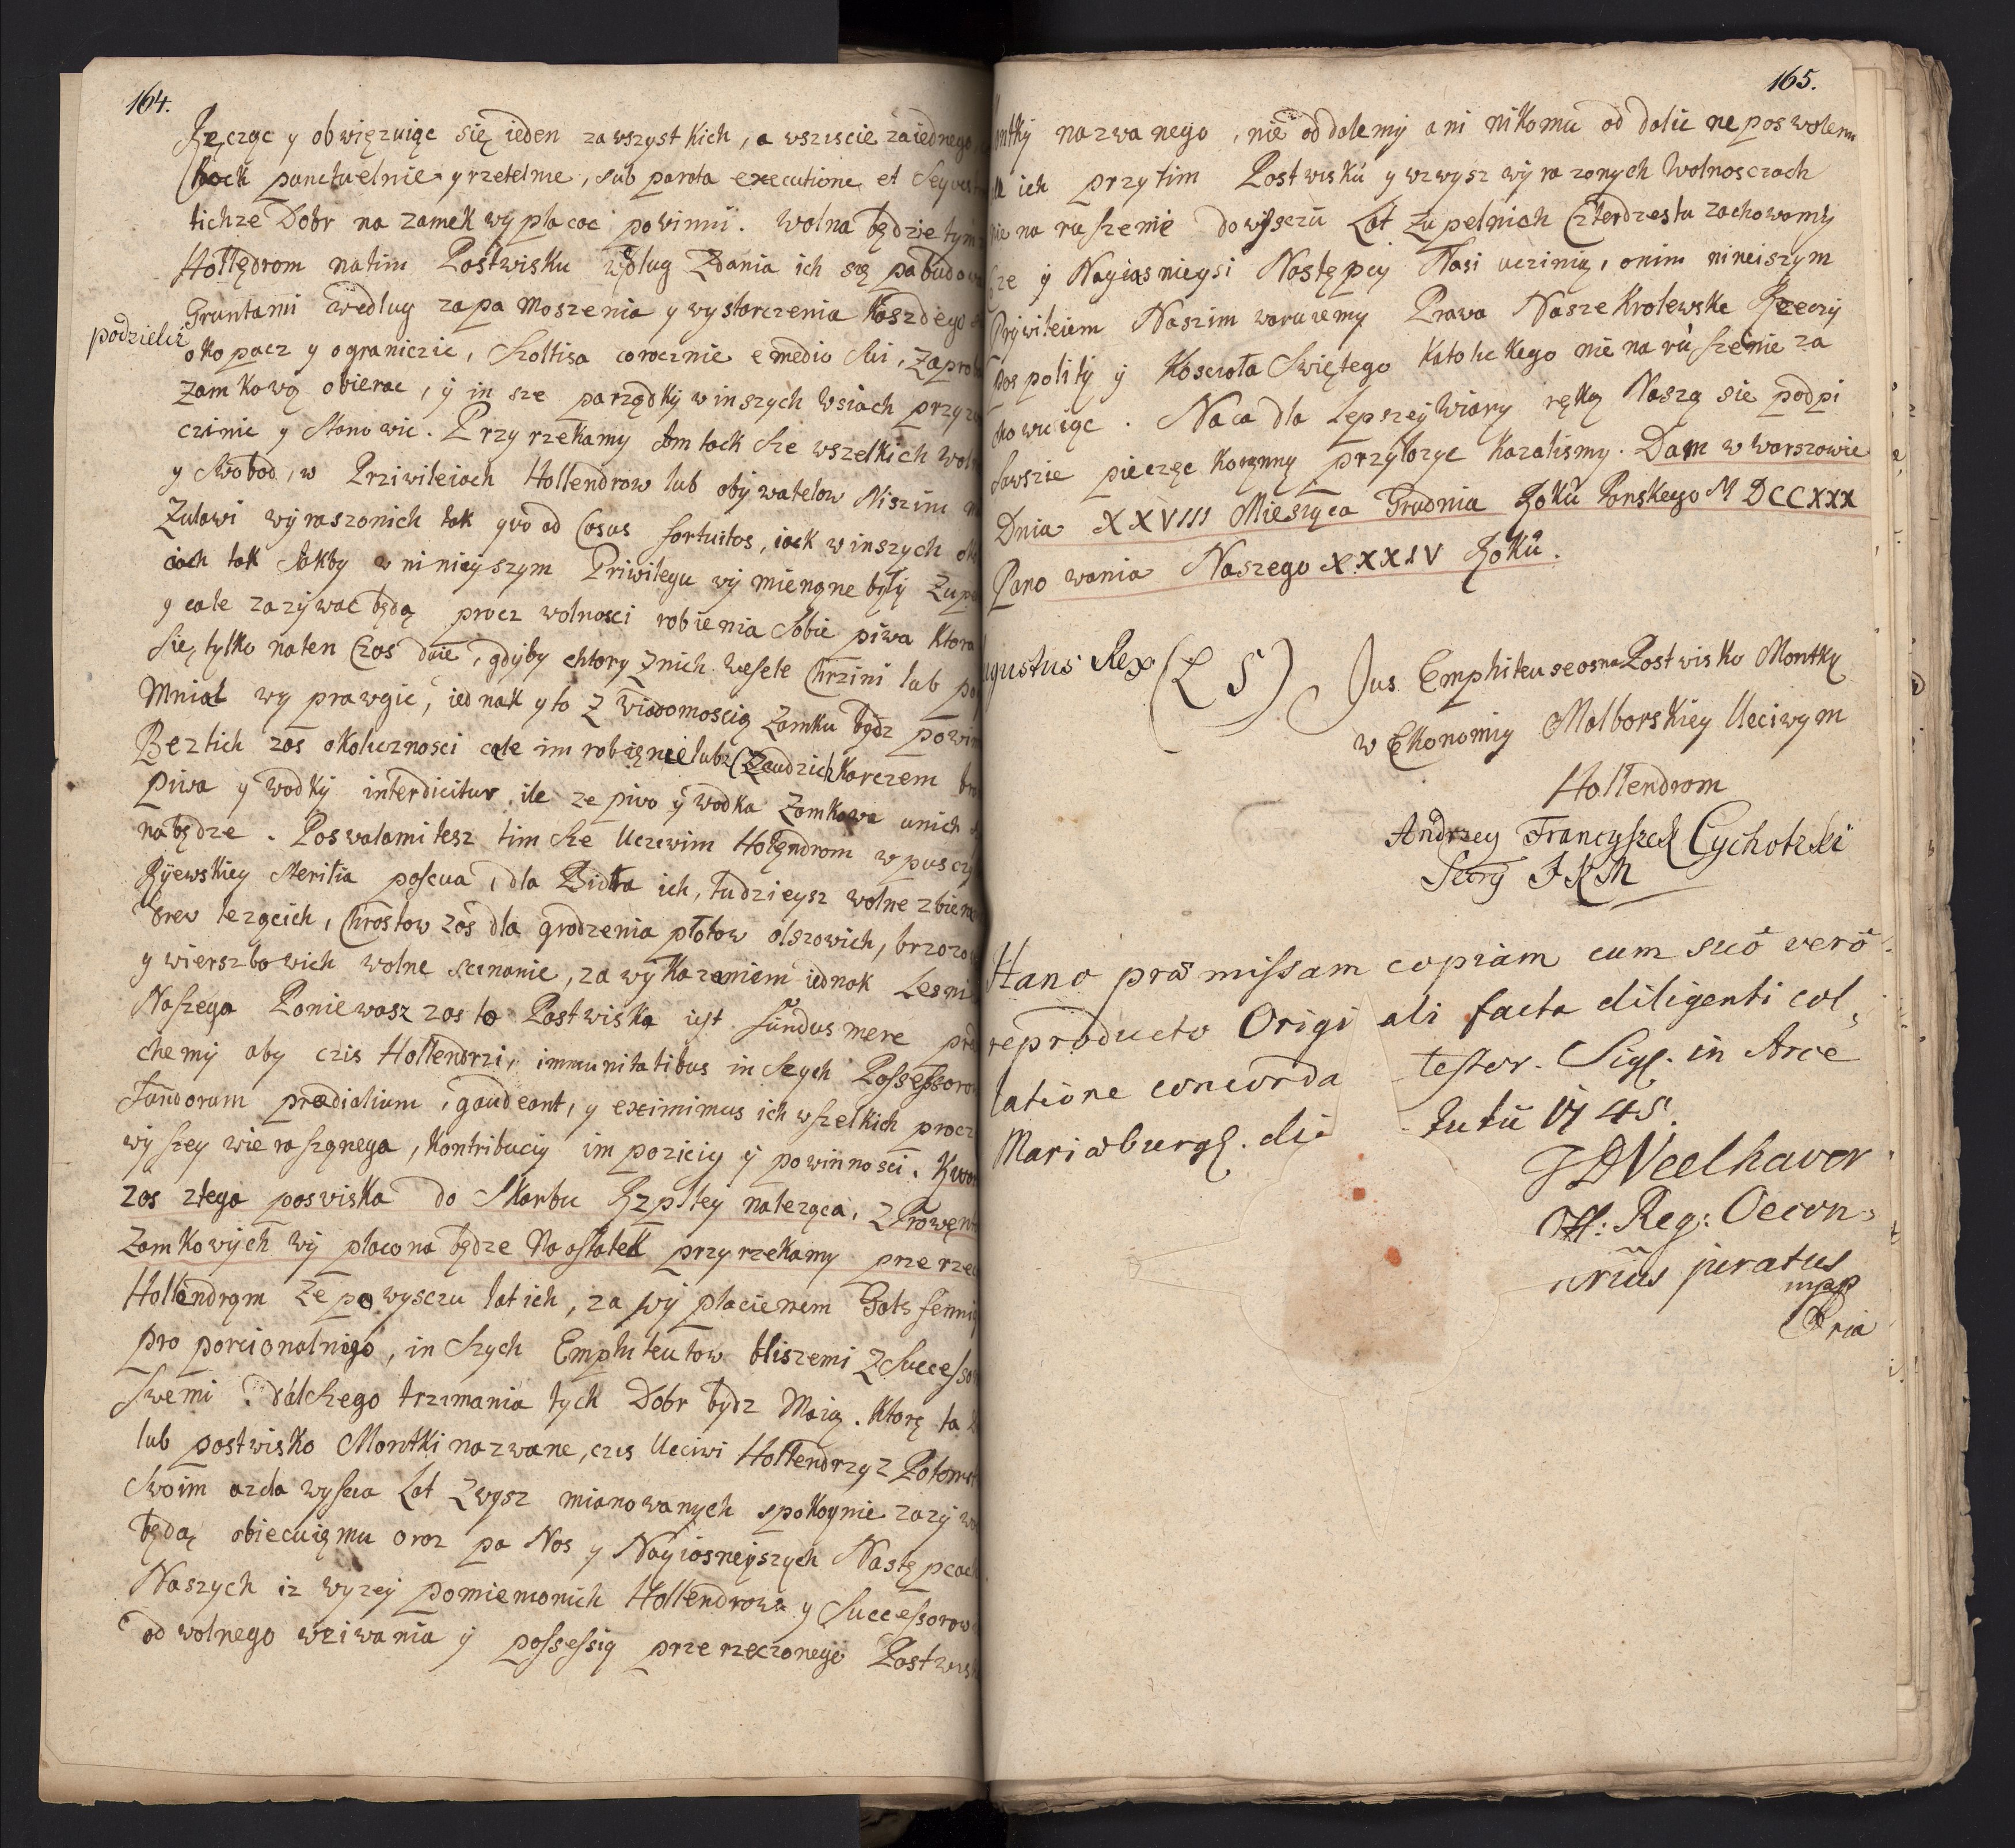 164.
Ręcząc y obwięzuiąc się ieden zawszystkich, a wsziscie zaiednego
punctuelnie y rzetelnie, sub parata executione et
tichze Dobr na zamek wypłacac powinni. Wolna będzie tym
Hollędrom natim Pastwisku wedlug Zdania ich się pabudow
Gruntami według zapa moszenia y wystarczenia Koszdego
podzielic
okopacz y ograniczic, Szoltisa corocznie e medio sui, Zaprob
Zamkową obierac, y in sze parządky w inszych Wsiach przyz
czinic y stanowic. Przyrzekamy tim tack sze wszelkich Woln
y Swobod, w Prziwileiach Hollendrow lub obywatelow Niszini
Zulawi wyraszonich tak quo ad Casus fortuitos, iack w inszych
iach tak iakby w ninieyszym Priwilegu wymienąne były Zup
y cale zazywac będą procz wolnosci robienia Sobie piwa Ktora
Się tylko naten Czas daie, gdyby chtory Znich Wesele Chrzini lub po
Mniał wyprawgic, iednak y to Z Wiadomoscią Zamku bydz powin
Beztich zas okolicznosci cale im robięnie lub z Czudzich Karczem bra
piwa y Wodky interdicitur ile ze pivo y wodka Zamkowa unich
nabędze. Poswalami tesz tim sze Uczciwim Holęndrom w puszcz
Ryewskiey Meritia pascua, dla Bidła ich, tudzieysz wolne zbiera
drev lezącich, Chrostow zos dla grodzenia płotow olszowich, brzozo
y wierszbowich wolne scinanie, za wykazaniem iednak Lesni
Naszego Poniewasz zas to Pastwiska iest fundus mere pra
chemy aby czis Hollendrzi, immunitatibus in szych Possessorow
Fundorum prædialium, gaudeant, y eximimus ich wszelkich procz
wyszey wie rasząnego, Kontribuciy impoziciy y powinnosci. Kwar
zos ztego posviska do Skarbu Rzpltey naleząca, z Prowęnt
Zamkowych wy płacona będze Na ostatek przyrzekamy prze rzec
Hollendrąm Ze po wysczu lat ich, za wy płacienem Gratsfennig
pro porcionalnigo, in szych Emphiteutow bliszemi Z Successor
Swemi dalszego trzimania tych Dobr bydz Maią. Ktorę ta
lub postwisko Montki nazwane, czis Uczciwi Hollendrzy z Potom
Swoim azda wyscia Lat Zwysz mianowanych spokoynie zazyw
będąę obiecuięmu oraz pa Nos y Nayiosneyszych Następcach
Naszych iz wyzey pomiemonich Hollendrow y Successorow
od wolnego uziwania y possessią prze rzeczonego Pastwis
165.
ntky nazwanego, nie oddalemy ani nikomu oddalic ne poswolem
ich przytim Pastwisku y wzwysz wyrazonych Wolnosczach
nie naruszenie do wysczu Lat Zupelnich Czterdzestu zachowamy
sze y Nayiasnieysi Następcy Nasi uczinią, onim nineiszym
Prywileiem Naszim waruiemy Prawa Nasze Krolewske Rzeczy
Pospolity y Koscioła Swiętego Katolickego nie naruszenie za
chowuiąc. Naca dla Lepszey Wiary ręką Naszą sie podpi
sawszie pieczęc Koronną przylozyc Kazalismy. Dam w Warszowie
Dnia XXVIII Miesząca Grudnia Roku Panskego M DCCXXX
Pano wania Naszego XXXIV Roku.
gustus Rex (L S) Jus Emphiteuseos na Postwisko Montky
w Ekonomiy Malborskiey Ucciwym
Hollendrom
Andrzey Francyszek Cychotzki
Secry J K M
Hanc præmissam copiam cum suo vero
reproducto Origi ali facta diligenti col,
latione concorda testor. Sigl. in Arce
Mariæburgl. di tutu 1745.
J D Veelhaver
Off: Reg: Oecon,
rius juratus
mpp